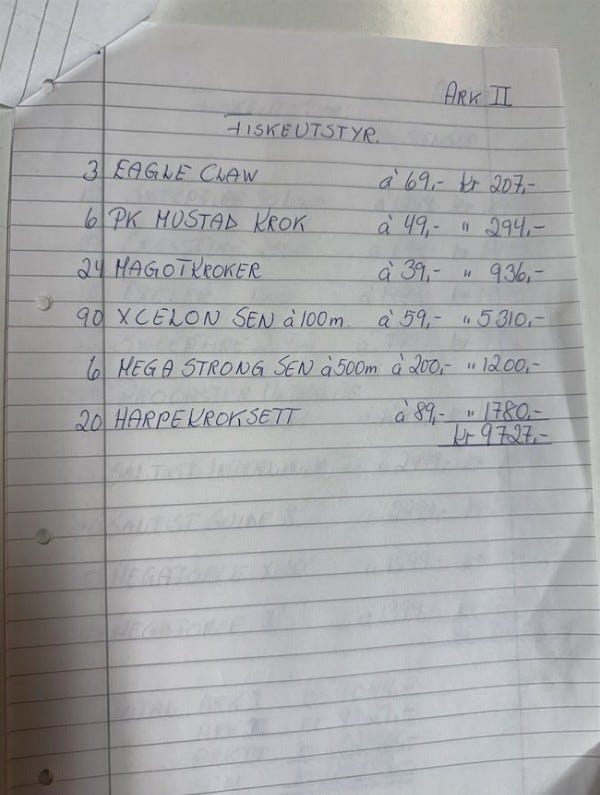 ARK II
FISKEUTSTYR.
3 EAGLE CLAW à 69,- kr 207,-
6 PK MUSTAD KROK à 49,- " 294,-
24 MAGOTKROKER à 39,- " 936,-
90 XCELON SEN à 100m. à 59,- " 5310,-
6 MEGA STRONG SEN à 500m à 200,- " 1200,-
20 HARPEKROKSETT à 89,- " 1780,-
kr 9727,-